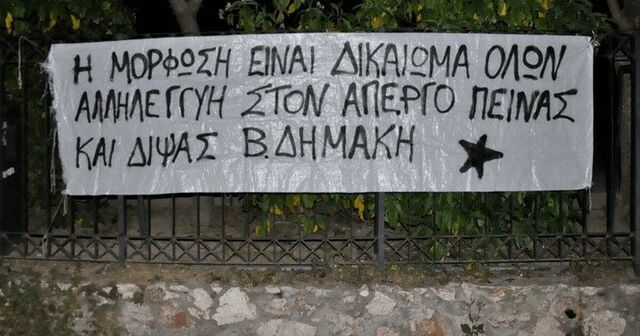 Η ΜΟΡΦΩΣΗ ΕΙΝΑΙ ΔΙΚΑΙΩΜΑ ΟΛΩΝ
ΑΛΛΗΛΕΓΓΥΗ ΣΤΟΝ ΑΠΕΡΓΟ ΠΕΙΝΑΣ
ΚΑΙ ΔΙΨΑΣ Β.ΔΗΜΑΚΗ